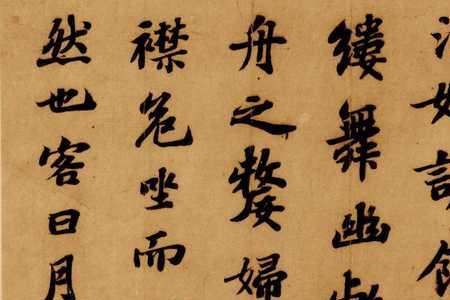 如訴
縷舞幽
舟之嫠婦
襟危坐而
然也客曰月